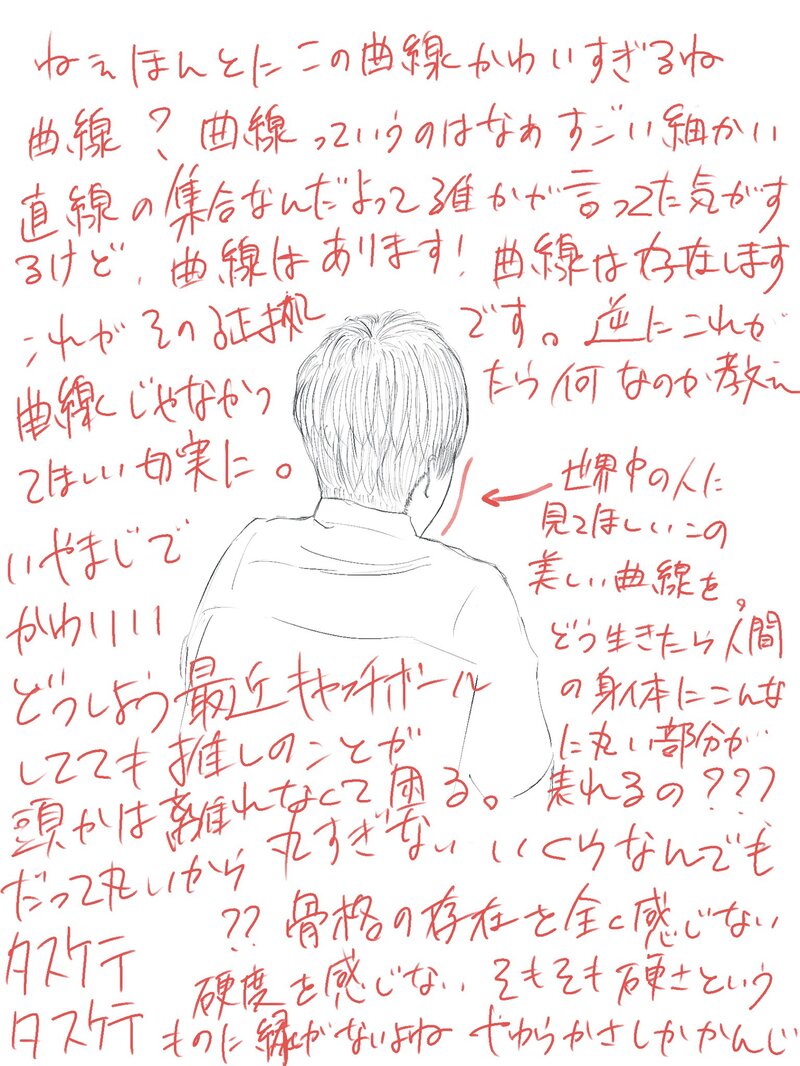 ねぇほんとにこの曲線かわいすぎるね
曲線？曲線っていうのはなぁすごい細かい
直線の集合なんだよって誰かが言ってた気がす
るけど、曲線はあります！曲線は存在します
これがその証拠です。逆にこれが
曲線じゃなかったら何なのか教え
てほしい切実に。
いやまじで
かわいいい
世界中の人に
見てほしいこの
美しい曲線を。
どう生きたら人間
の身体にこんな
に丸い部分が
表れるの？？？
どうしよう最近キャッチボール
してても推しのことが
頭かは離れなくて困る。
だって丸いから丸すぎない いくらなんでも
？？骨格の存在を全く感じない
タスケテ
硬度を感じない そもそも硬さという
タスケテ
ものに縁がないよね やわらかさしかかんじ